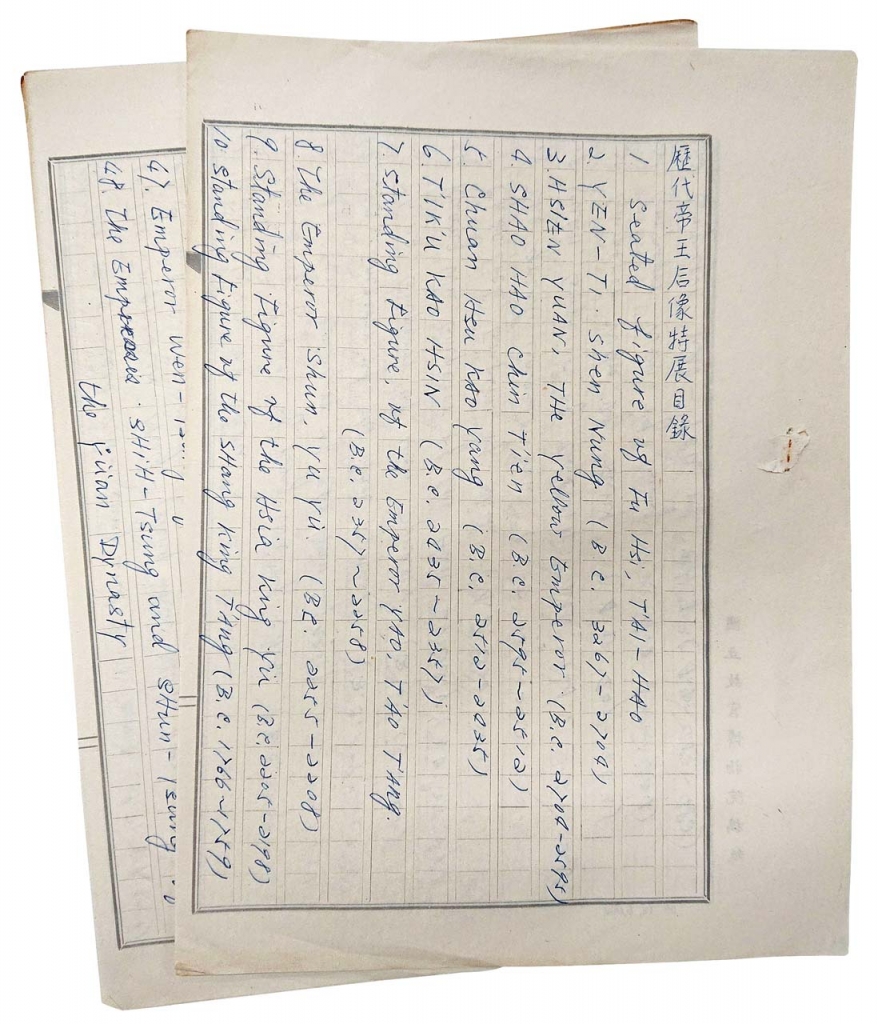 歷代帝王后像特展目錄
1 Seated figure of Fu Hsi, TAI-HAO
2. YEN-TI. Shen Nung (B.C. 3267-2704)
3. HSIEN YUAN, THE Yellow Emperor (B.C. 2704-2595)
4. SHAO HAO Chin Tien (B.C. 2595-2512)
5. Chuan Hsu KAO Yang (B.C. 2512-2035)
6. TIK'U KAO HSIN (B.C. 2035-2357)
7. Standing Figure, of the Emperor YAO, T'AO T'ANG.
(B.C. 2357~2258)
8. The Emperor Shun, YU YÜ. (B.C. 2255-2208)
9. Standing Figure of the Hsia King Yü (B.C. 2205-2198)
10. Standing Figure of the SHANG King TANG (B.C. 1766~1759)
47. Emperor Wen-
48. The Emperors. SHIH-Tsung and SHUN-Tsung of
the Yüan Dynasty